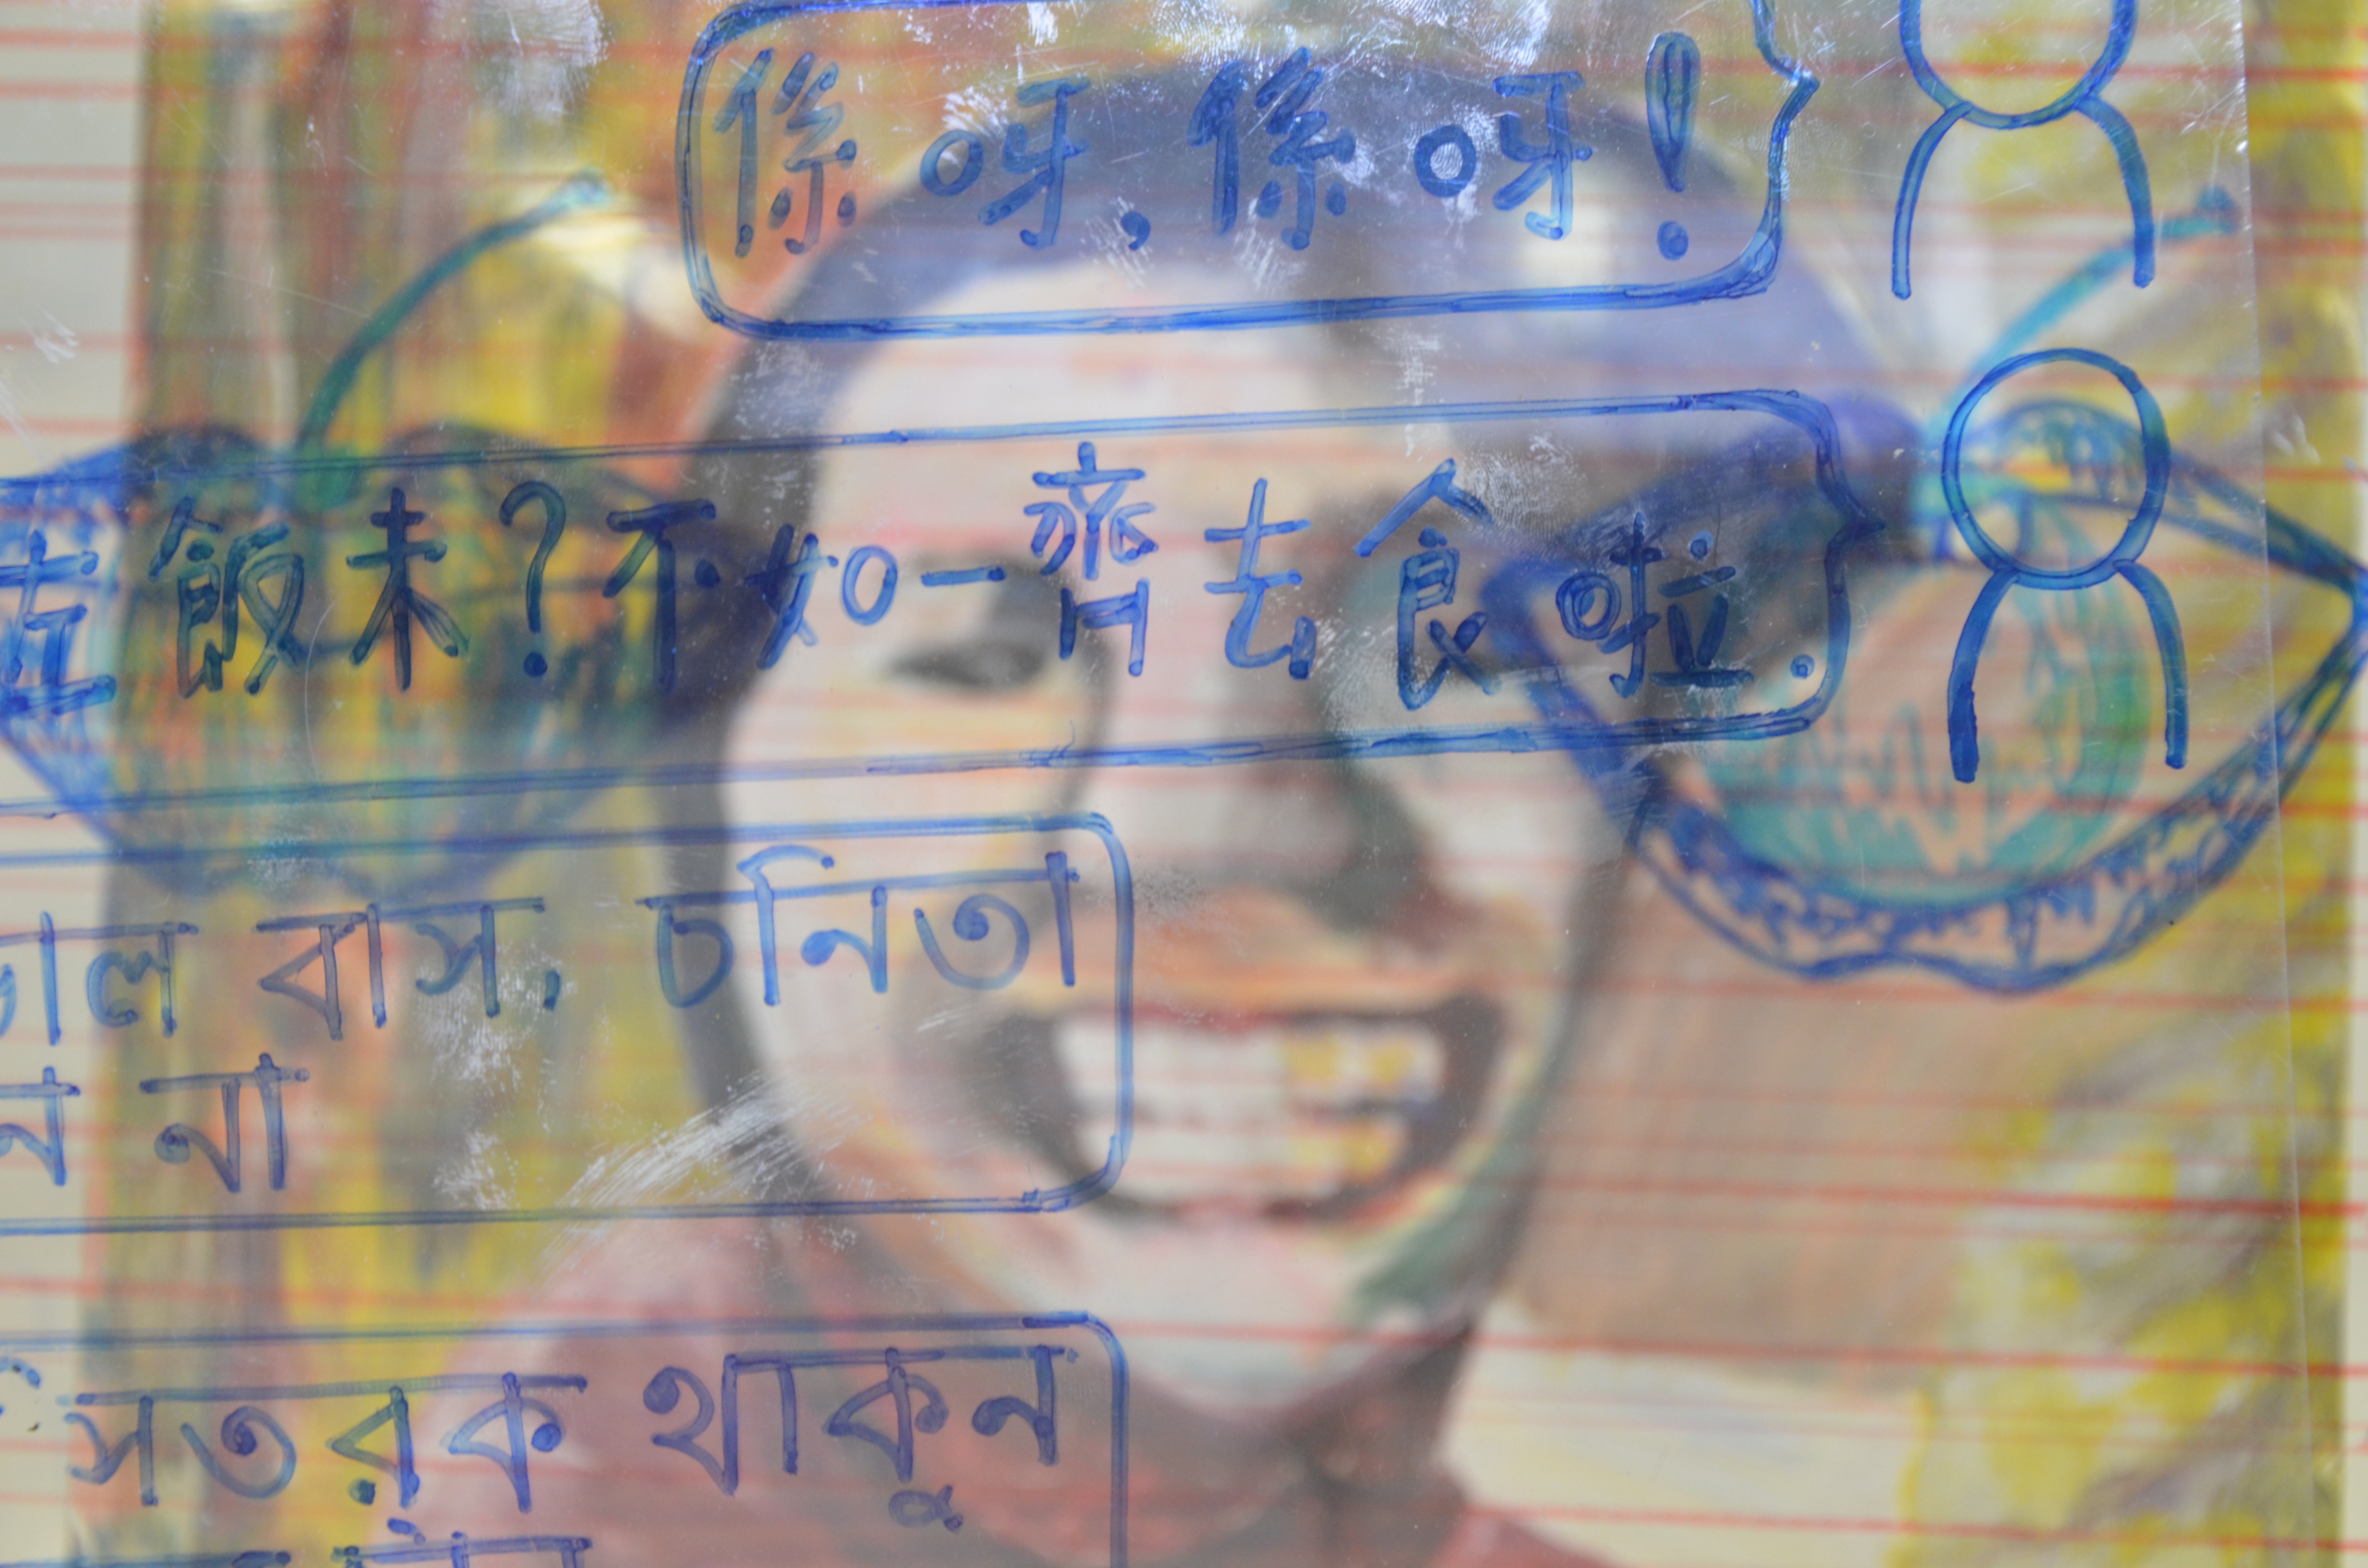 係呀,係呀!
左飯未?不如一齊去食啦。
ভাল বাস, চনিতা
না
সতরক থাকুন